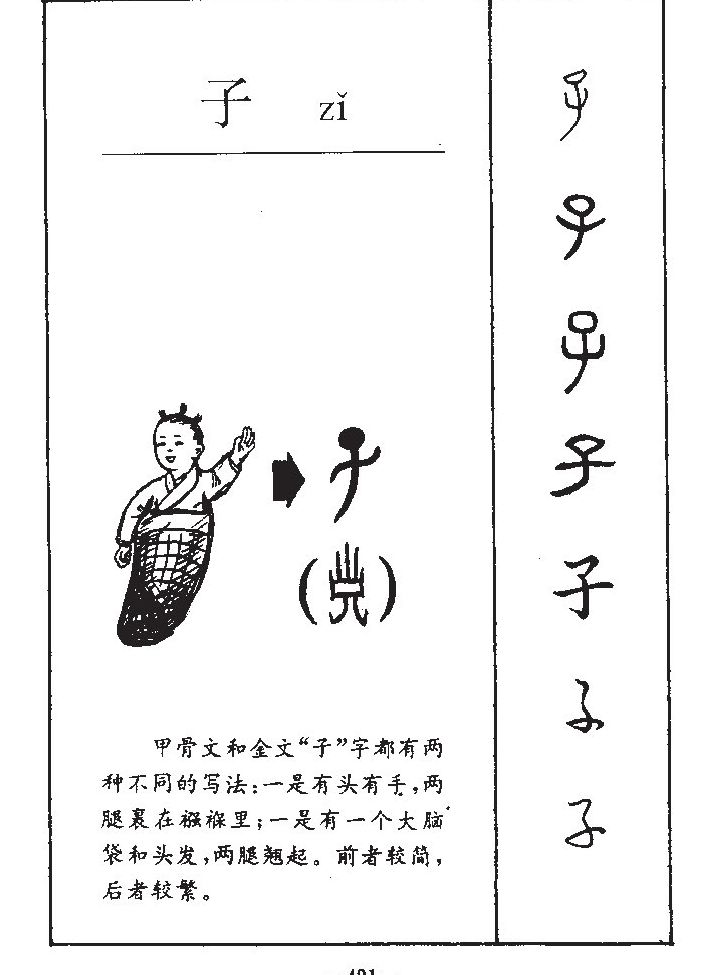 子 zǐ
甲骨文和金文“子”字都有两
种不同的写法:一是有头有手,两
腿裹在襁褓里;一是有一个大脑
袋和头发,两腿翘起。前者较简,
后者较繁。
子
子
子
子
子
子
子